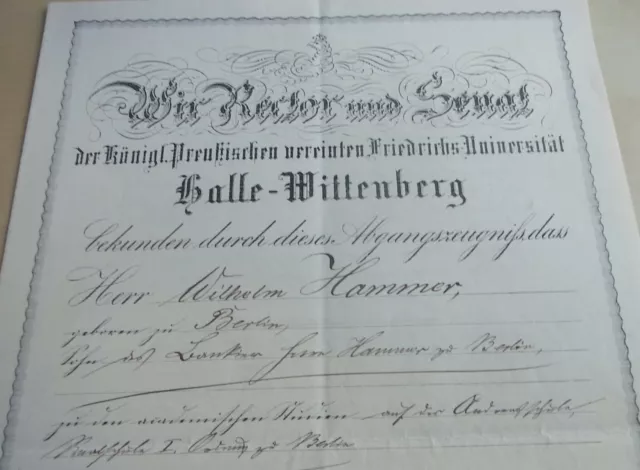 Wir Rector und Senat
der Königl. Preußischen vereinten Friedrichs Universität
Halle-Wittenberg
bekunden durch dieses Abgangszeugniß, dass
Herr Wilhelm Hammer,
geboren zu Berlin,
Sohn des Banker Herrn Hammer zu Berlin,
zu den academischen Studien auf der Andreasschule,
Realschule I. Ordnung zu Berlin